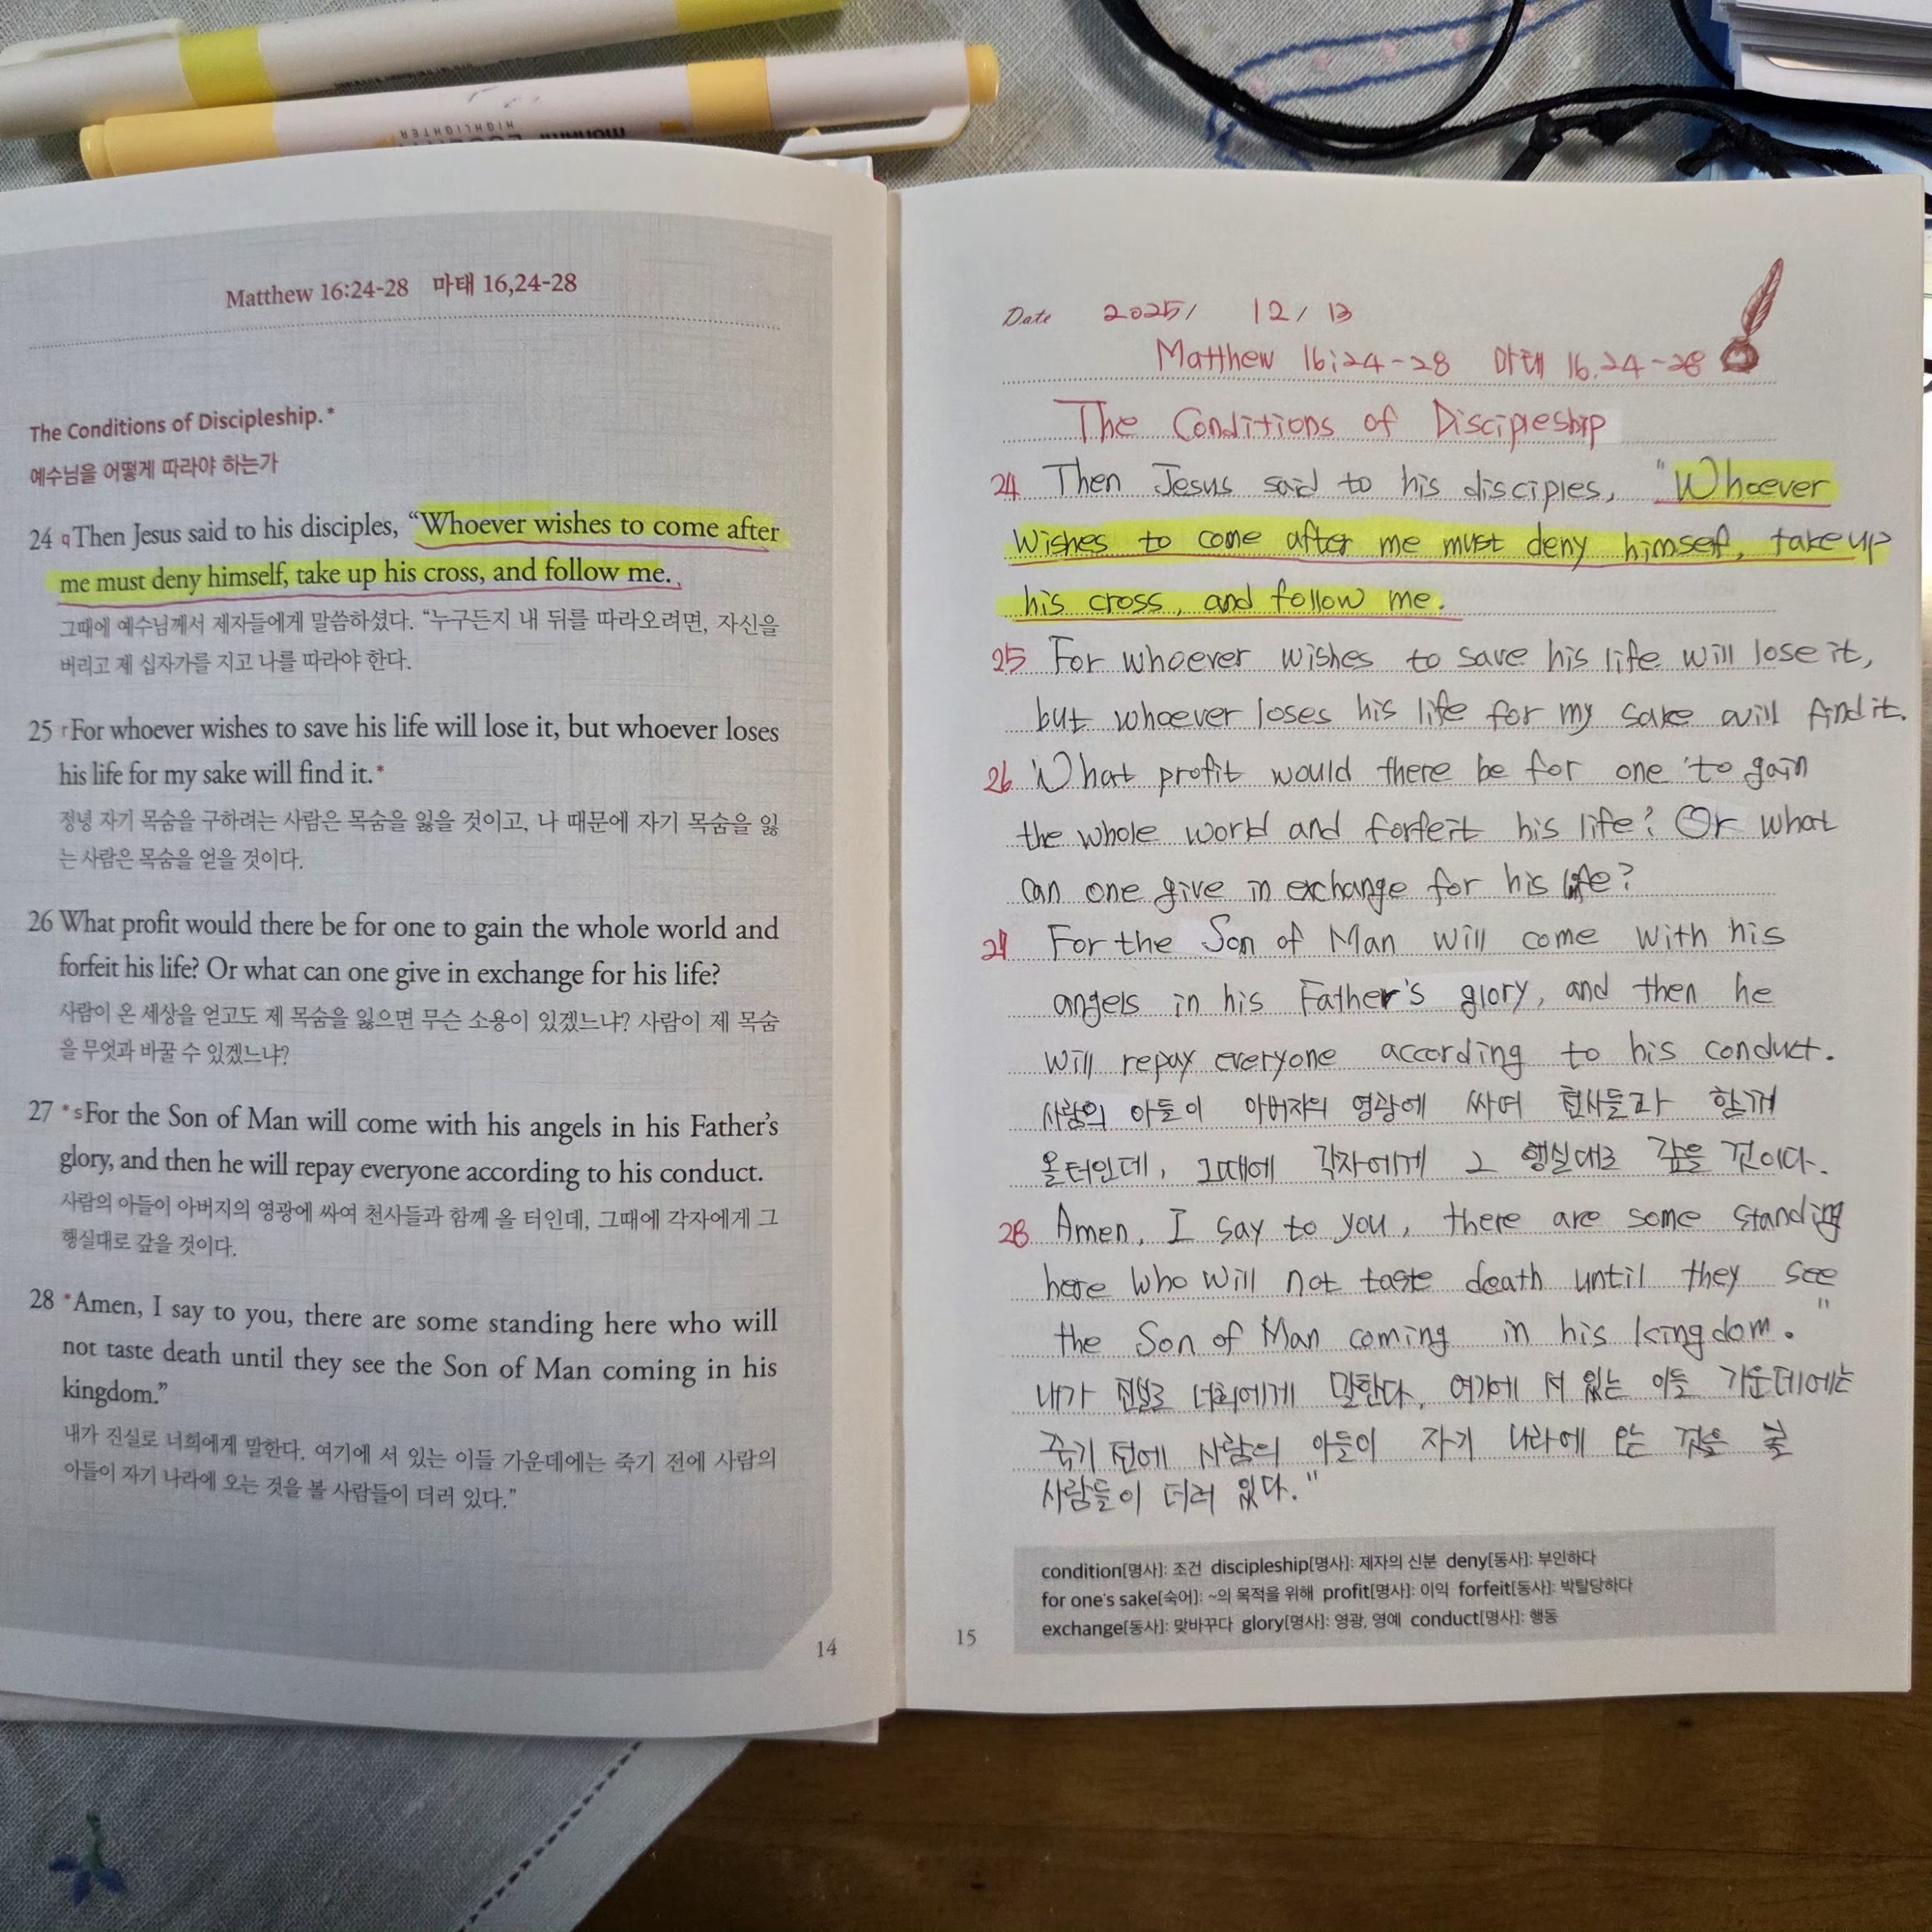 HIGHLIGHTER
Matthew 16:24-28 마태 16,24-28
The Conditions of Discipleship.*
예수님을 어떻게 따라야 하는가
24 qThen Jesus said to his disciples, “Whoever wishes to come after
me must deny himself, take up his cross, and follow me.
그때에 예수님께서 제자들에게 말씀하셨다. “누구든지 내 뒤를 따라오려면, 자신을
버리고 제 십자가를 지고 나를 따라야 한다.
25 rFor whoever wishes to save his life will lose it, but whoever loses
his life for my sake will find it.*
정녕 자기 목숨을 구하려는 사람은 목숨을 잃을 것이고, 나 때문에 자기 목숨을 잃
는 사람은 목숨을 얻을 것이다.
26 What profit would there be for one to gain the whole world and
forfeit his life? Or what can one give in exchange for his life?
사람이 온 세상을 얻고도 제 목숨을 잃으면 무슨 소용이 있겠느냐? 사람이 제 목숨
을 무엇과 바꿀 수 있겠느냐?
27 *sFor the Son of Man will come with his angels in his Father’s
glory, and then he will repay everyone according to his conduct.
사람의 아들이 아버지의 영광에 싸여 천사들과 함께 올 터인데, 그때에 각자에게 그
행실대로 갚을 것이다.
28 *Amen, I say to you, there are some standing here who will
not taste death until they see the Son of Man coming in his
kingdom.”
내가 진실로 너희에게 말한다. 여기에 서 있는 이들 가운데에는 죽기 전에 사람의
아들이 자기 나라에 오는 것을 볼 사람들이 더러 있다.”
14
Date 2025/ 12/ 13
Matthew 16:24-28 마태 16.24-28
The Conditions of Discipleship
24 Then Jesus said to his disciples, "Whoever
wishes to come after me must deny himself, take up
his cross, and follow me.
25 For whoever wishes to save his life will lose it,
but whoever loses his life for my sake will find it.
26 What profit would there be for one to gain
the whole world and forfeit his life? Or what
can one give in exchange for his life?
27 For the Son of Man will come with his
angels in his Father's glory, and then he
will repay everyone according to his conduct.
사람의 아들이 아버지의 영광에 싸여 천사들과 함께
올터인데, 그때에 각자에게 그 행실대로 갚을 것이다.
28 Amen, I say to you, there are some standing
here who will not taste death until they see
the Son of Man coming in his kingdom."
내가 진실로 너희에게 말한다. 여기에 서 있는 이들 가운데에는
죽기 전에 사람의 아들이 자기 나라에 오는 것을 볼
사람들이 더러 있다."
condition[명사]: 조건 discipleship[명사]: 제자의 신분 deny[동사]: 부인하다
for one's sake[숙어]: ~의 목적을 위해 profit[명사]: 이익 forfeit[동사]: 박탈당하다
exchange[동사]: 맞바꾸다 glory[명사]: 영광, 영예 conduct[명사]: 행동
15